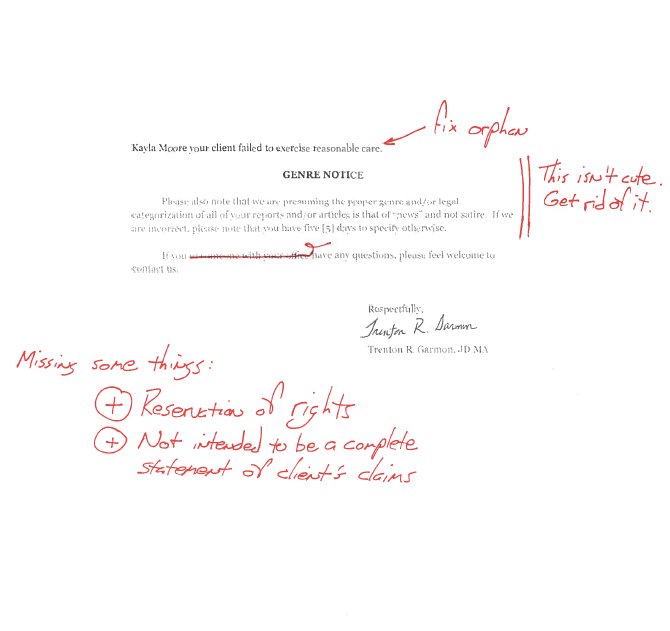 fix orphan
Kayla Moore your client failed to exercise reasonable care.
GENRE NOTICE
This isn't cute.
Get rid of it.
Please also note that we are presuming the proper genre and/or legal
categorization of all of your reports and/or articles is that of "news" and not satire. If we
are incorrect, please note that you have five [5] days to specify otherwise.
If you or someone with your office have any questions, please feel welcome to
contact us.
Respectfully,
Trenton R. Garmon
Trenton R. Garmon, JD MA
Missing some things:
+ Reservation of rights
+ Not intended to be a complete
statement of client's claims